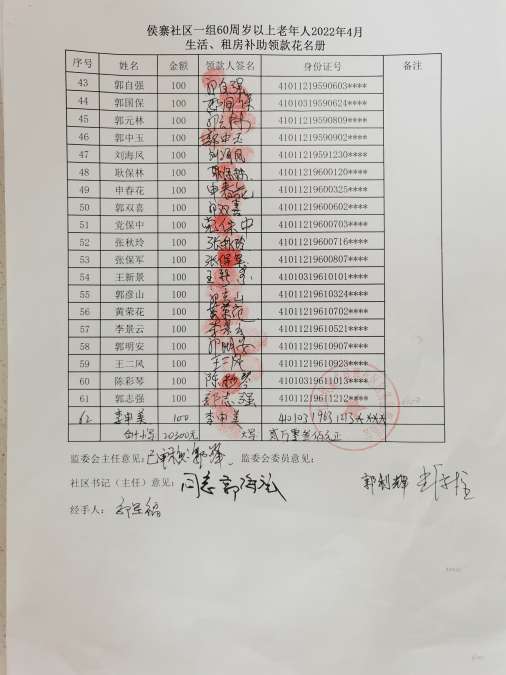 侯寨社区一组60周岁以上老年人2022年4月
生活、租房补助领款花名册
序号 姓名 金额 领款人签名 身份证号 备注
43 郭自强 100 郭自强 41011219590603****
44 郭国保 100 41010319590624****
45 郭元林 100 41011219590809****
46 郭中玉 100 郭中玉 41011219590902****
47 刘海凤 100 刘海凤 41011219591230****
48 耿保林 100 耿保林 41011219600120****
49 申春花 100 申春花 41011219600325****
50 郭双喜 100 郭双喜 41011219600602****
51 党保中 100 党保中 41011219600703****
52 张秋玲 100 张秋玲 41011219600716****
53 张保军 100 张保军 41011219600807****
54 王新景 100 王新景 41010319610101****
55 郭彦山 100 41011219610324****
56 黄荣花 100 黄荣花 41011219610702****
57 李景云 100 李景云 41011219610521****
58 郭明安 100 41011219610907****
59 王二凤 100 王二凤 41011219610923****
60 陈彩琴 100 陈彩琴 41011219611013****
61 郭志强 100 郭志强 41011219611212****
62 李申美 100 李申美 41010319631213****
合计小写 20300元 大写 贰万零叁佰元正
监委会主任意见: 监委会委员意见:
社区书记（主任）意见: 同志 郭海 郭利辉
经手人: